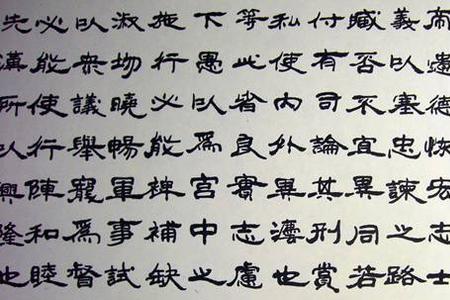 帝遺德恢宏志士
義以塞忠諫之路
臧否不宜異同若
付有司論其刑賞
私使內外異灋也
等此皆良實志慮
下愚以為宮中之
施行必能裨補缺
淑均曉暢軍事試
以眾議舉寵為督
必能使行陳和睦
先漢所以興隆也